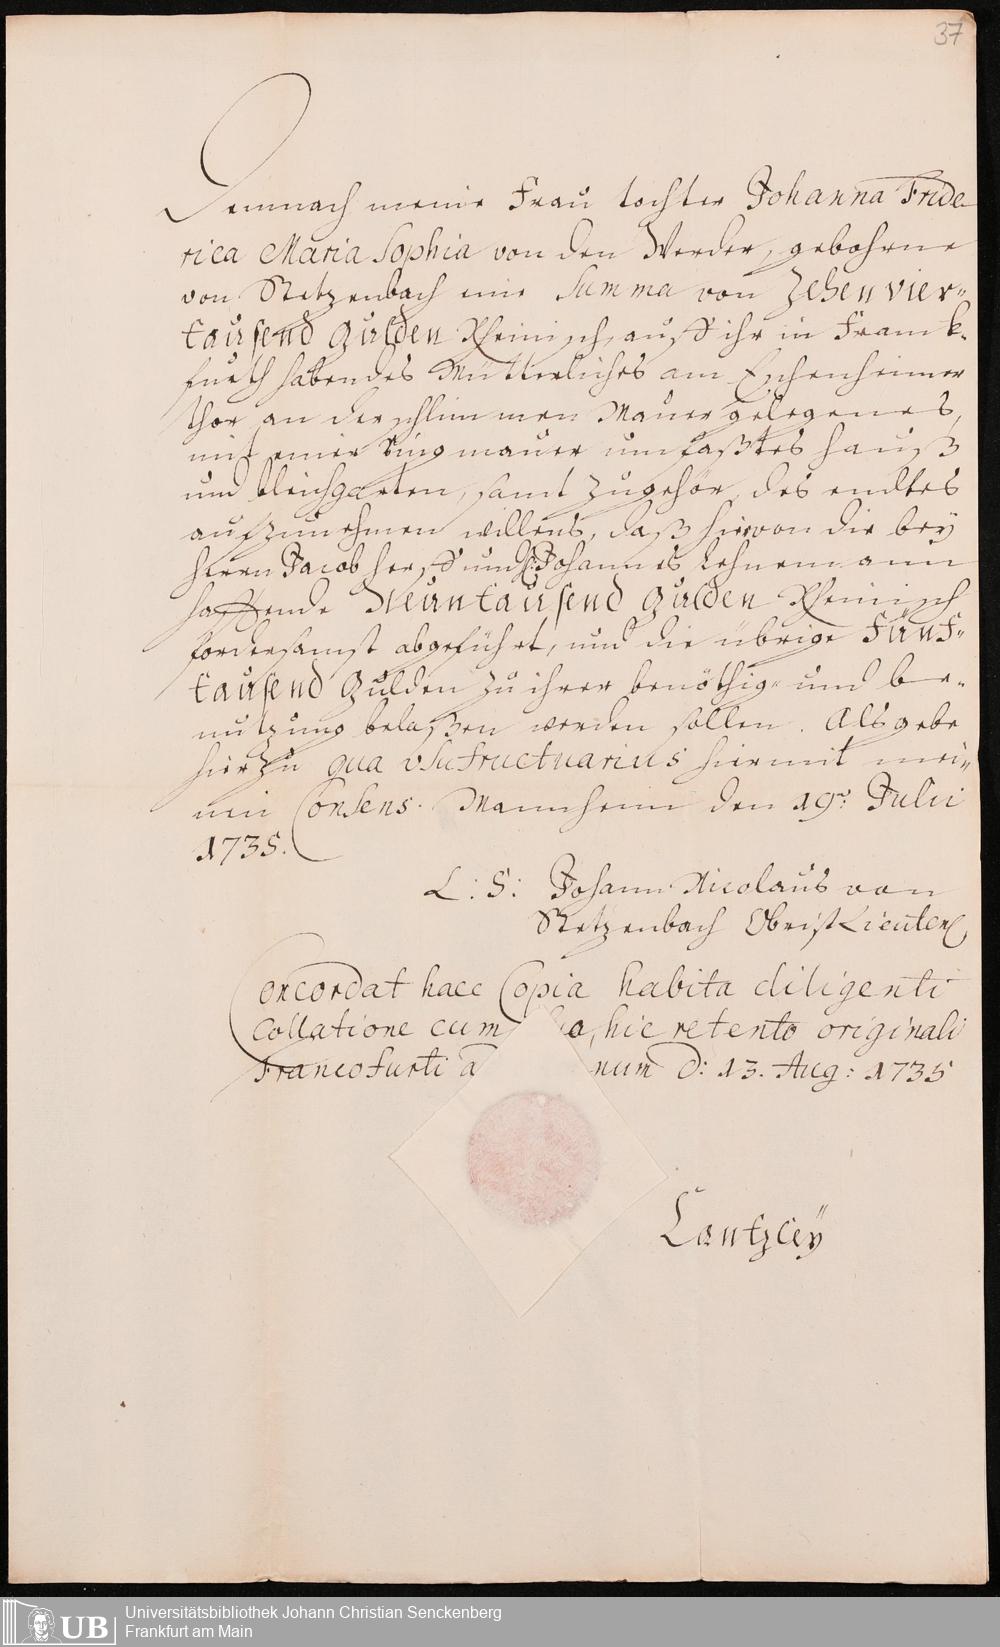 37
Demnach meine Frau tochter Johanna Fride-
rica Maria Sophia von den Werder, gebohrne
von Stetzenbach eine Summa von Zehen vier-
tausend gulden Rheinisch, auff ihr in Franck-
furth habendes Mütterliches am Eschenheimer
thor an der schlimmen Mauer gelegenes,
mit einer Ringmauer umfaßtes hauß
und bleichgarten, samt zugehör, des endtes
aufzunehmen willens, daß hiervon die bey
Herrn Jacob und Johannes Lehnemann
hafftende Neuntausend gulden Rheinisch
fordersamst abgeführt, und die übrige Fünf-
tausend Gulden zu ihrer benöthig- und be-
nutzung belaßen werden sollen. Als gebe
hierzu qua Usufructuarius hiermit mei-
nen Consens. Mannheim den 19.ⁿ Julii
1735.
L: S: Johann Nicolaus von
Stetzenbach Obrist Lieuten
Concordat haec Copia habita diligenti
Collatione cum hic retento originali
Francofurti num D: 13. Aug: 1735
Cantzleÿ
Universitätsbibliothek Johann Christian Senckenberg
Frankfurt am Main
UB